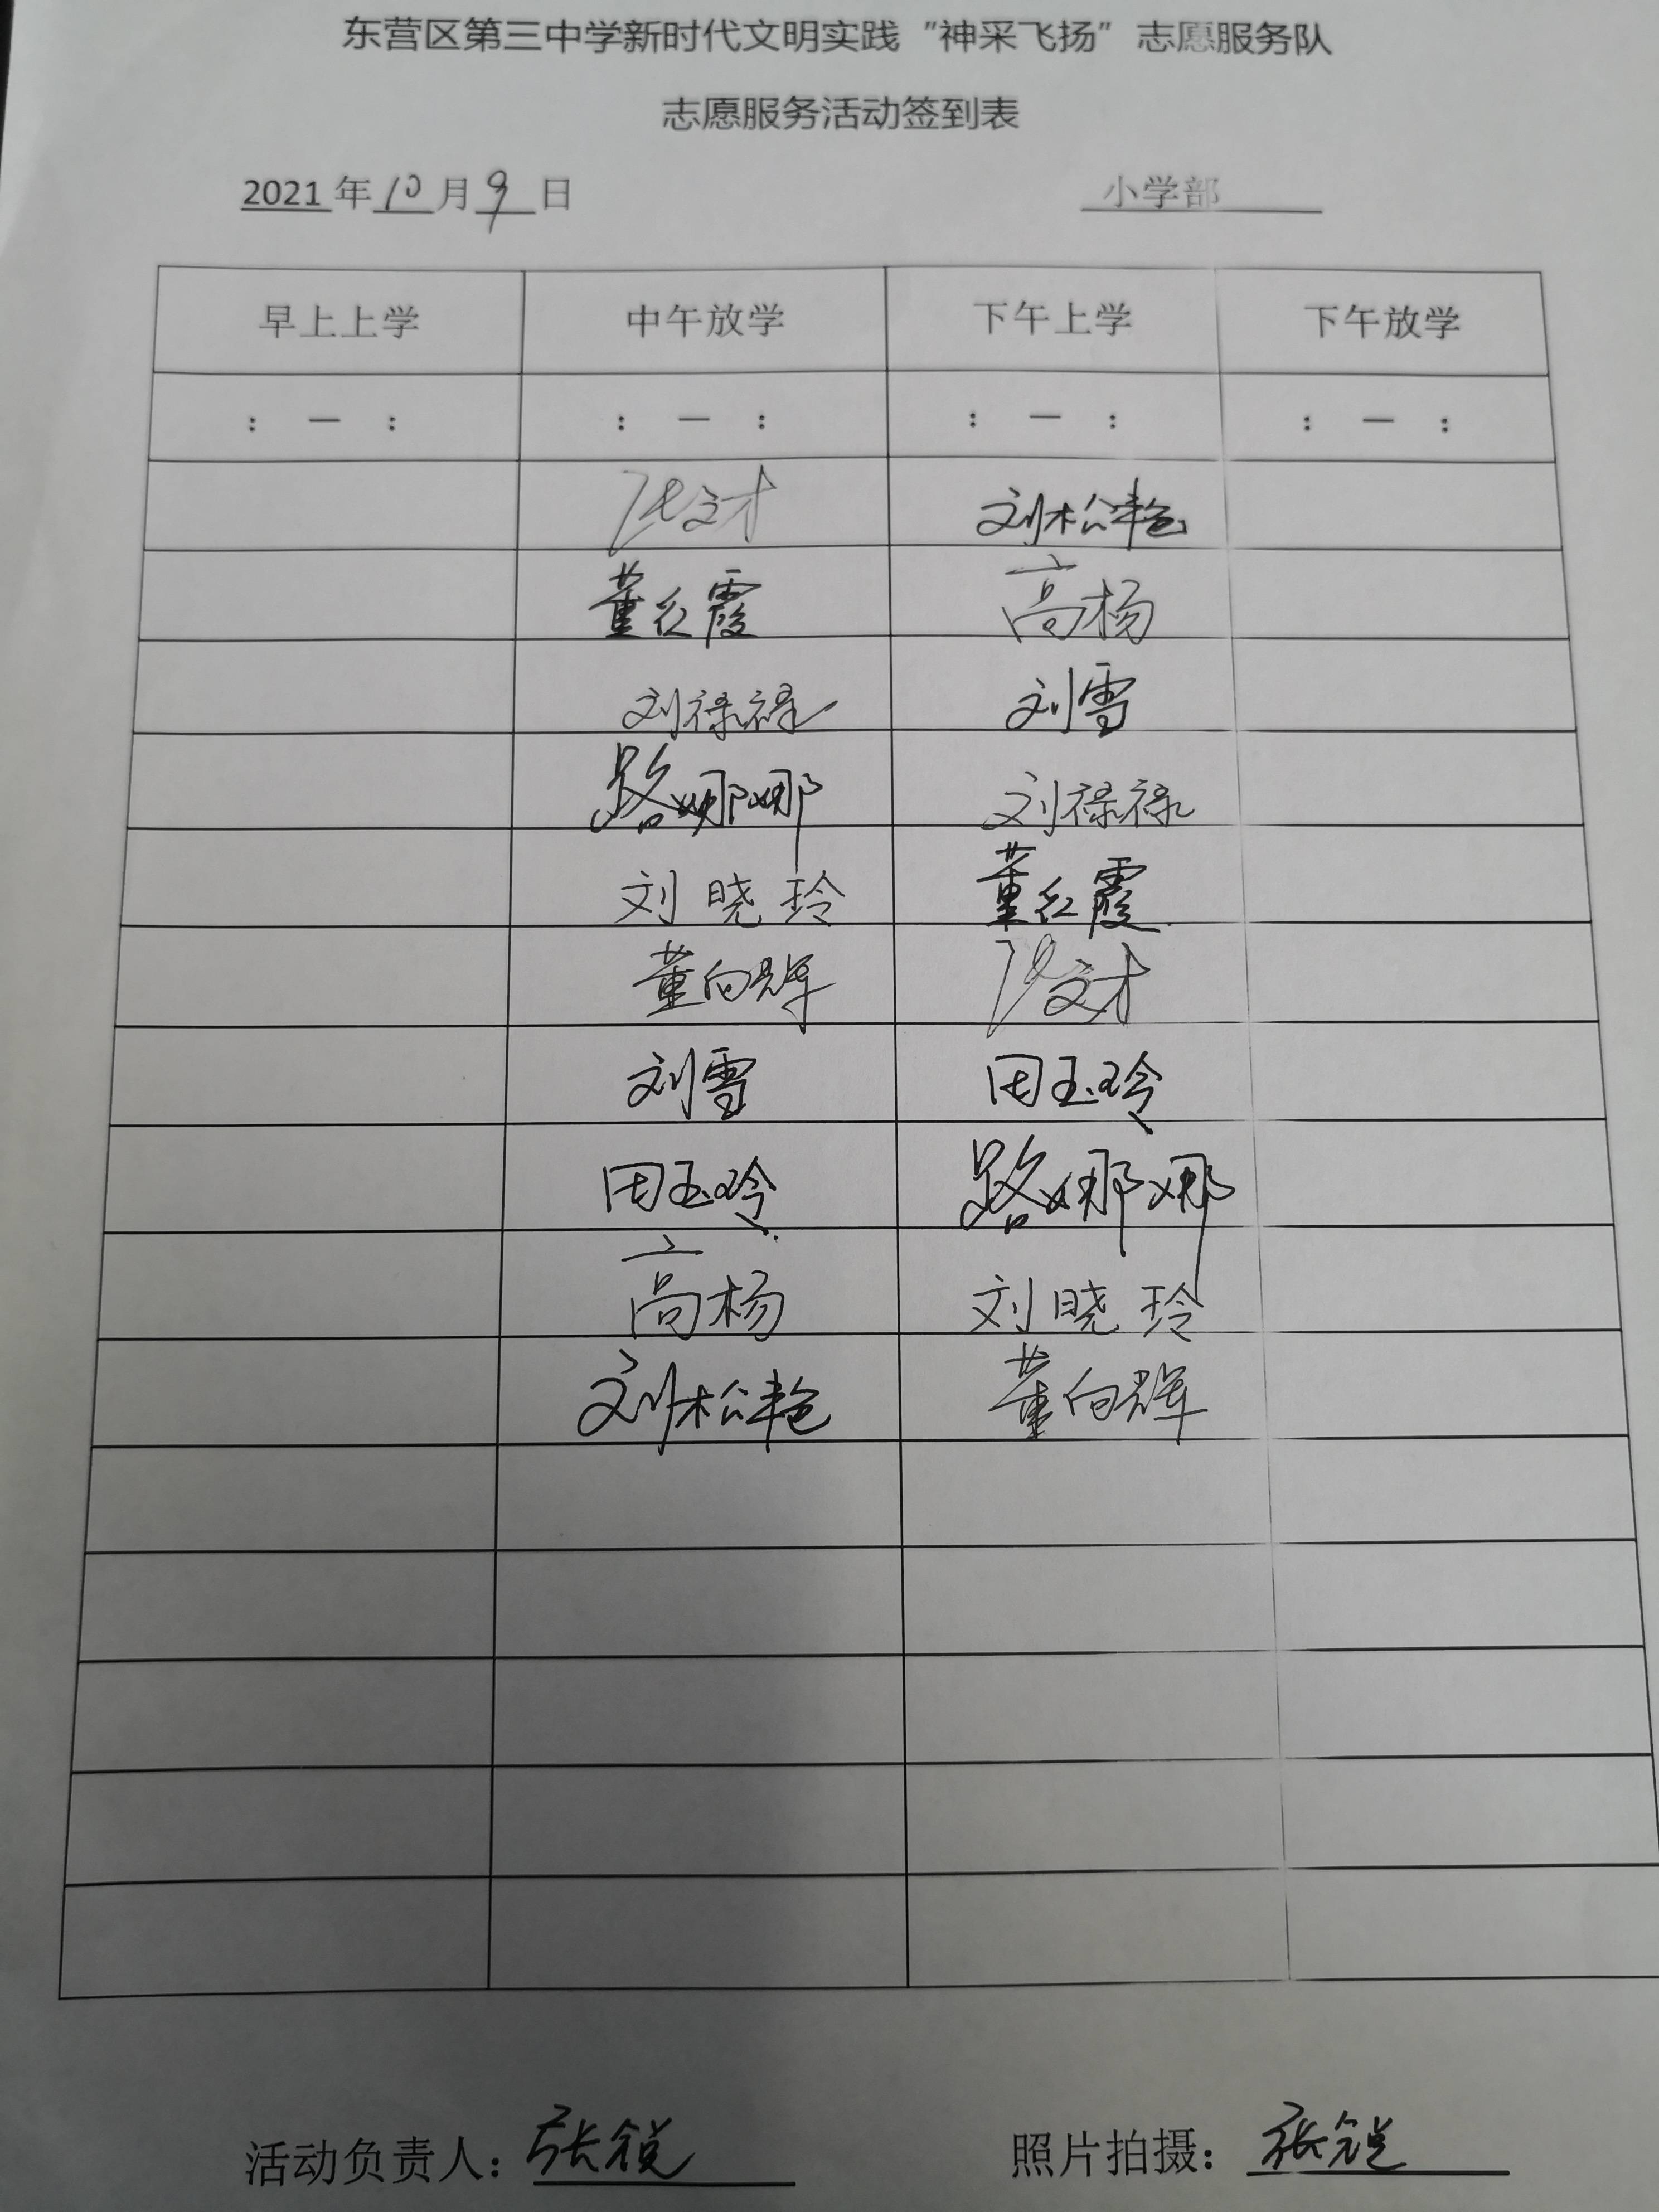 东营区第三中学新时代文明实践“神采飞扬”志愿服务队
志愿服务活动签到表
2021 年 10 月 9 日 小学部
早上上学 中午放学 下午上学 下午放学
: — : : — : : — : : — :
文才 刘松艳
董红霞 高杨
刘禄禄 刘雪
路娜娜 刘禄禄
刘晓玲 董红霞
董向辉 文才
刘雪 田玉玲
田玉玲 路娜娜
高杨 刘晓玲
刘松艳 董向辉
活动负责人：张锐 照片拍摄：张锐